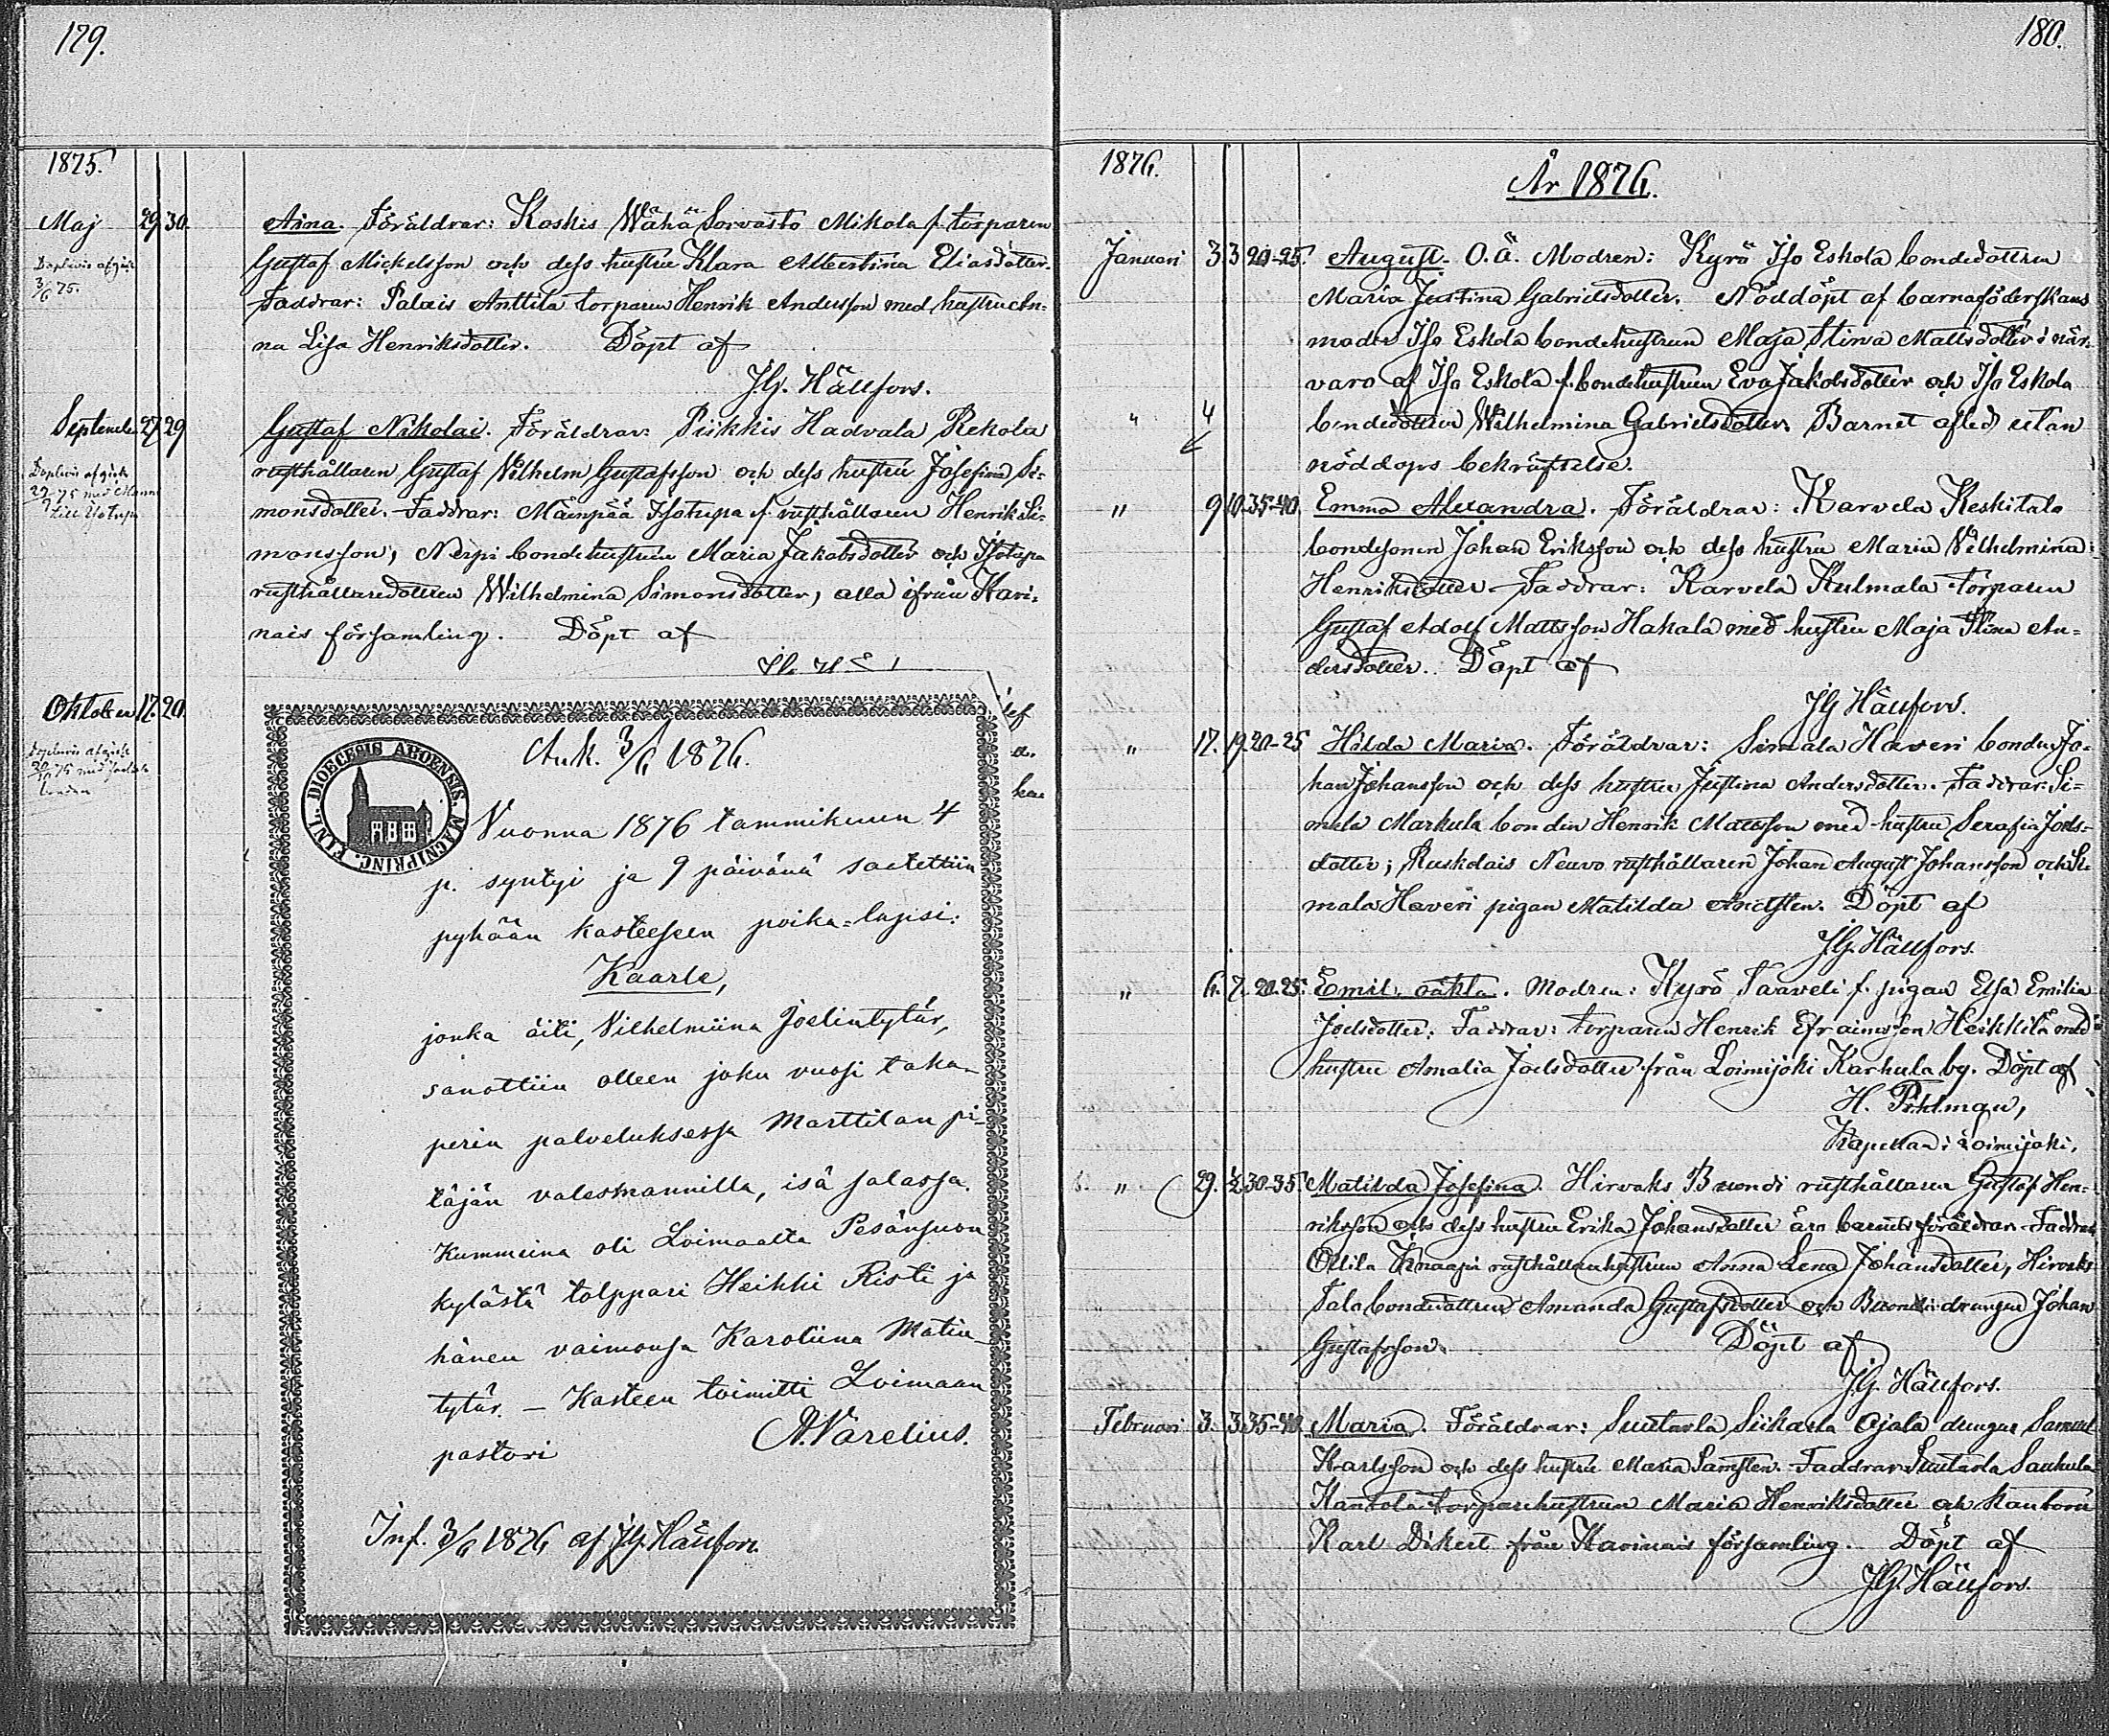 179.
1875.
Maj 29. 30. Aina. Föräldrar: Koskis Wähä Sorvasto Mikola f. torparen
Gustaf Mickelsson och dess hustru Klara Albertina Eliasdotter.
Faddrar: Palais Anttila torparen Henrik Andersson med hustru An-
na Lisa Henriksdotter. Döpt af
J.G. Hällfors.
3/6 75.
27 29 Gustaf Nikolai. Föräldrar: Piikkis Hadvala Rekola
rusthållaren Gustaf Vilhelm Gustafsson och dess hustru Josefina Si-
monsdotter. Faddrar: Mäenpää Isotupa f. rusthållaren Henrik Si-
monsson, bondehustrun Maria Jakobsdotter och Isotupa
rusthållaredottren Wilhelmina Simonsdotter, alla ifrån Kari-
nais församling. Döpt af
Oktober 17. 20.
Ank. 3/6 1876.
FINL. DIOECESIS ABOENSIS. MAGNIPRINC.
Vuonna 1876 tammikuun 4
p. syntyi ja 9 päivänä saatettiin
pyhään kasteesen poika-lapsi:
Kaarle,
jonka äiti, Vilhelmiina Joelintytär,
sanottiin olleen joku vuosi taka-
perin palveluksessa Marttilan pi-
täjän valesmannilla, isä salassa.
Kummeina oli Loimaalta Pesänsuon
kylästä talppari Heikki Risti ja
hänen vaimonsa Karoliina Matin-
tytär. – Kasteen toimitti Loimaan
pastori A. Varelius.
Inf. 3/6 1876 af J.G. Hällfors.
180.
1876.
År 1876.
Januari 3. 3 20-25. August. O.Ä. Modren: Kyrö Iso Eskola bondedottren
Maria Justina Gabrielsdotter. Nöddöpt af barnaföderskans
moder Iso Eskola bondehustrun Maja Stina Mattsdotter i när-
varo af Iso Eskola f. bondehustrun Eva Jakobsdotter och Iso Eskola
" 4 bondedottren Wilhelmina Gabrielsdotter. Barnet afled utan
nöddops bekräftelse.
" 9 10. 35-40. Emma Alexandra. Föräldrar: Karvela Keskitalo
bondesonen Johan Eriksson och dess hustru Maria Vilhelmina
Henriksdotter. Faddrar: Karvela Kulmala torparen
Gustaf Adolf Mattsson Hakala med hustru Maja Stina An-
dersdotter. Döpt af
J.G. Hällfors.
" 17. 19. 20-25 Hilda Maria. Föräldrar: Simala Haveri bonden Jo-
han Johansson och dess hustru Justina Andersdotter. Faddrar: Si-
mala Markula bonden Henrik Mattsson med hustru Serafia Joels-
dotter; Ruskolais Neuvo rusthållaren Johan August Johansson och Si-
mala Haveri pigan Matilda Döpt af
J.G. Hällfors.
" 6. 7. 20-25. Emil, oäkta. Modren: Kyrö Taaveli f. pigan Elsa Emilia
Joelsdotter. Faddrar: torparen Henrik Efraimsson Heikkilä med
hustru Amalia Joelsdotter från Loimijoki Karhula by. Döpt af
H. Pihlman,
Kapellan i Loimijoki.
" 29. 30-35. Matilda Josefina. Hirvaks Bruondi rusthållaren Gustaf Hen-
riksson och dess hustru Erika Johansdotter äro barnets föräldrar. Faddrar:
Ollila Knaapi rusthållarehustrun Anna Lena Johansdotter, Hirvaks
Talo bondedottren Amanda Gustafsdotter och drängen Johan
Gustafsson. Döpt af
J.G. Hällfors.
Februari 3. 3. 35-40. Maria. Föräldrar: Suutarla Siikarla Ojala drängen Samuel
Karlsson och dess hustru Maria Faddrar: Suutarla Sauhula
Kantola torparehustrun Maria Henriksdotter och kantorn
Karl Dikert från Karinais församling. Döpt af
J.G. Hällfors.